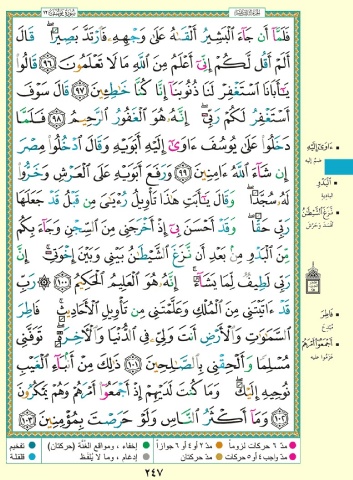 سورة يوسف ١٢
فَلَمَّآ أَن جَآءَ ٱلْبَشِيرُ أَلْقَىٰهُ عَلَىٰ وَجْهِهِۦ فَٱرْتَدَّ بَصِيرًا ۖ قَالَ
أَلَمْ أَقُل لَّكُمْ إِنِّىٓ أَعْلَمُ مِنَ ٱللَّهِ مَا لَا تَعْلَمُونَ ﴿٩٦﴾ قَالُوا۟
يَٰٓأَبَانَا ٱسْتَغْفِرْ لَنَا ذُنُوبَنَآ إِنَّا كُنَّا خَٰطِـِٔينَ ﴿٩٧﴾ قَالَ سَوْفَ
أَسْتَغْفِرُ لَكُمْ رَبِّىٓ ۖ إِنَّهُۥ هُوَ ٱلْغَفُورُ ٱلرَّحِيمُ ﴿٩٨﴾ فَلَمَّا
دَخَلُوا۟ عَلَىٰ يُوسُفَ ءَاوَىٰٓ إِلَيْهِ أَبَوَيْهِ وَقَالَ ٱدْخُلُوا۟ مِصْرَ
إِن شَآءَ ٱللَّهُ ءَامِنِينَ ﴿٩٩﴾ وَرَفَعَ أَبَوَيْهِ عَلَى ٱلْعَرْشِ وَخَرُّوا۟
لَهُۥ سُجَّدًا ۖ وَقَالَ يَٰٓأَبَتِ هَٰذَا تَأْوِيلُ رُءْيَٰىَ مِن قَبْلُ قَدْ جَعَلَهَا
رَبِّى حَقًّا ۖ وَقَدْ أَحْسَنَ بِىٓ إِذْ أَخْرَجَنِى مِنَ ٱلسِّجْنِ وَجَآءَ بِكُم
مِّنَ ٱلْبَدْوِ مِنۢ بَعْدِ أَن نَّزَغَ ٱلشَّيْطَٰنُ بَيْنِى وَبَيْنَ إِخْوَتِىٓ ۚ إِنَّ
رَبِّى لَطِيفٌ لِّمَا يَشَآءُ ۚ إِنَّهُۥ هُوَ ٱلْعَلِيمُ ٱلْحَكِيمُ ﴿١٠٠﴾ ۞ رَبِّ
قَدْ ءَاتَيْتَنِى مِنَ ٱلْمُلْكِ وَعَلَّمْتَنِى مِن تَأْوِيلِ ٱلْأَحَادِيثِ ۚ فَاطِرَ
ٱلسَّمَٰوَٰتِ وَٱلْأَرْضِ أَنتَ وَلِىِّۦ فِى ٱلدُّنْيَا وَٱلْـَٔاخِرَةِ ۖ تَوَفَّنِى
مُسْلِمًا وَأَلْحِقْنِى بِٱلصَّٰلِحِينَ ﴿١٠١﴾ ذَٰلِكَ مِنْ أَنۢبَآءِ ٱلْغَيْبِ
نُوحِيهِ إِلَيْكَ ۖ وَمَا كُنتَ لَدَيْهِمْ إِذْ أَجْمَعُوٓا۟ أَمْرَهُمْ وَهُمْ يَمْكُرُونَ
﴿١٠٢﴾ وَمَآ أَكْثَرُ ٱلنَّاسِ وَلَوْ حَرَصْتَ بِمُؤْمِنِينَ ﴿١٠٣﴾
ءَاوَىٰٓ إِلَيْهِ
ضمّ إليه
ٱلْبَدْوِ
البادية
نَّزَغَ ٱلشَّيْطَٰنُ
أفسد وحرّش
فَاطِرَ
مُبدع
أَجْمَعُوٓا۟ أَمْرَهُمْ
عزموا عليه
مدّ ٦ حركات لزوماً
مدّ ٢ أو ٤ أو ٦ جوازاً
مدّ واجب ٤ أو ٥ حركات
مدّ حركتان
إخفاء، ومواقع الغنّة (حركتان)
إدغام، وما لا يُلفظ
تفخيم
قلقلة
٢٤٧